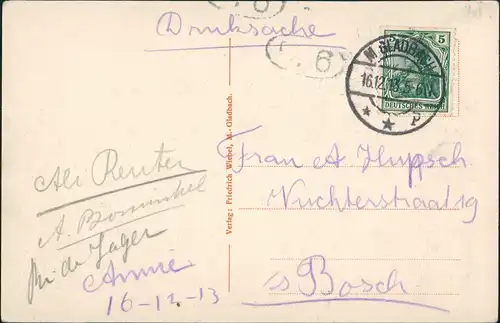 Drucksache
6
6
5
M. GLADBACH
16.12.13. 5-6N.
DEUTSCHES REICH
Verlag: Friedrich Wiebel, M.-Gladbach.
Frau A. Huppsch.
Nuchterstraat 19
s Bosch.
Ali Reuter
A. Bominkel
M. de Jager
Annie
16-12-13